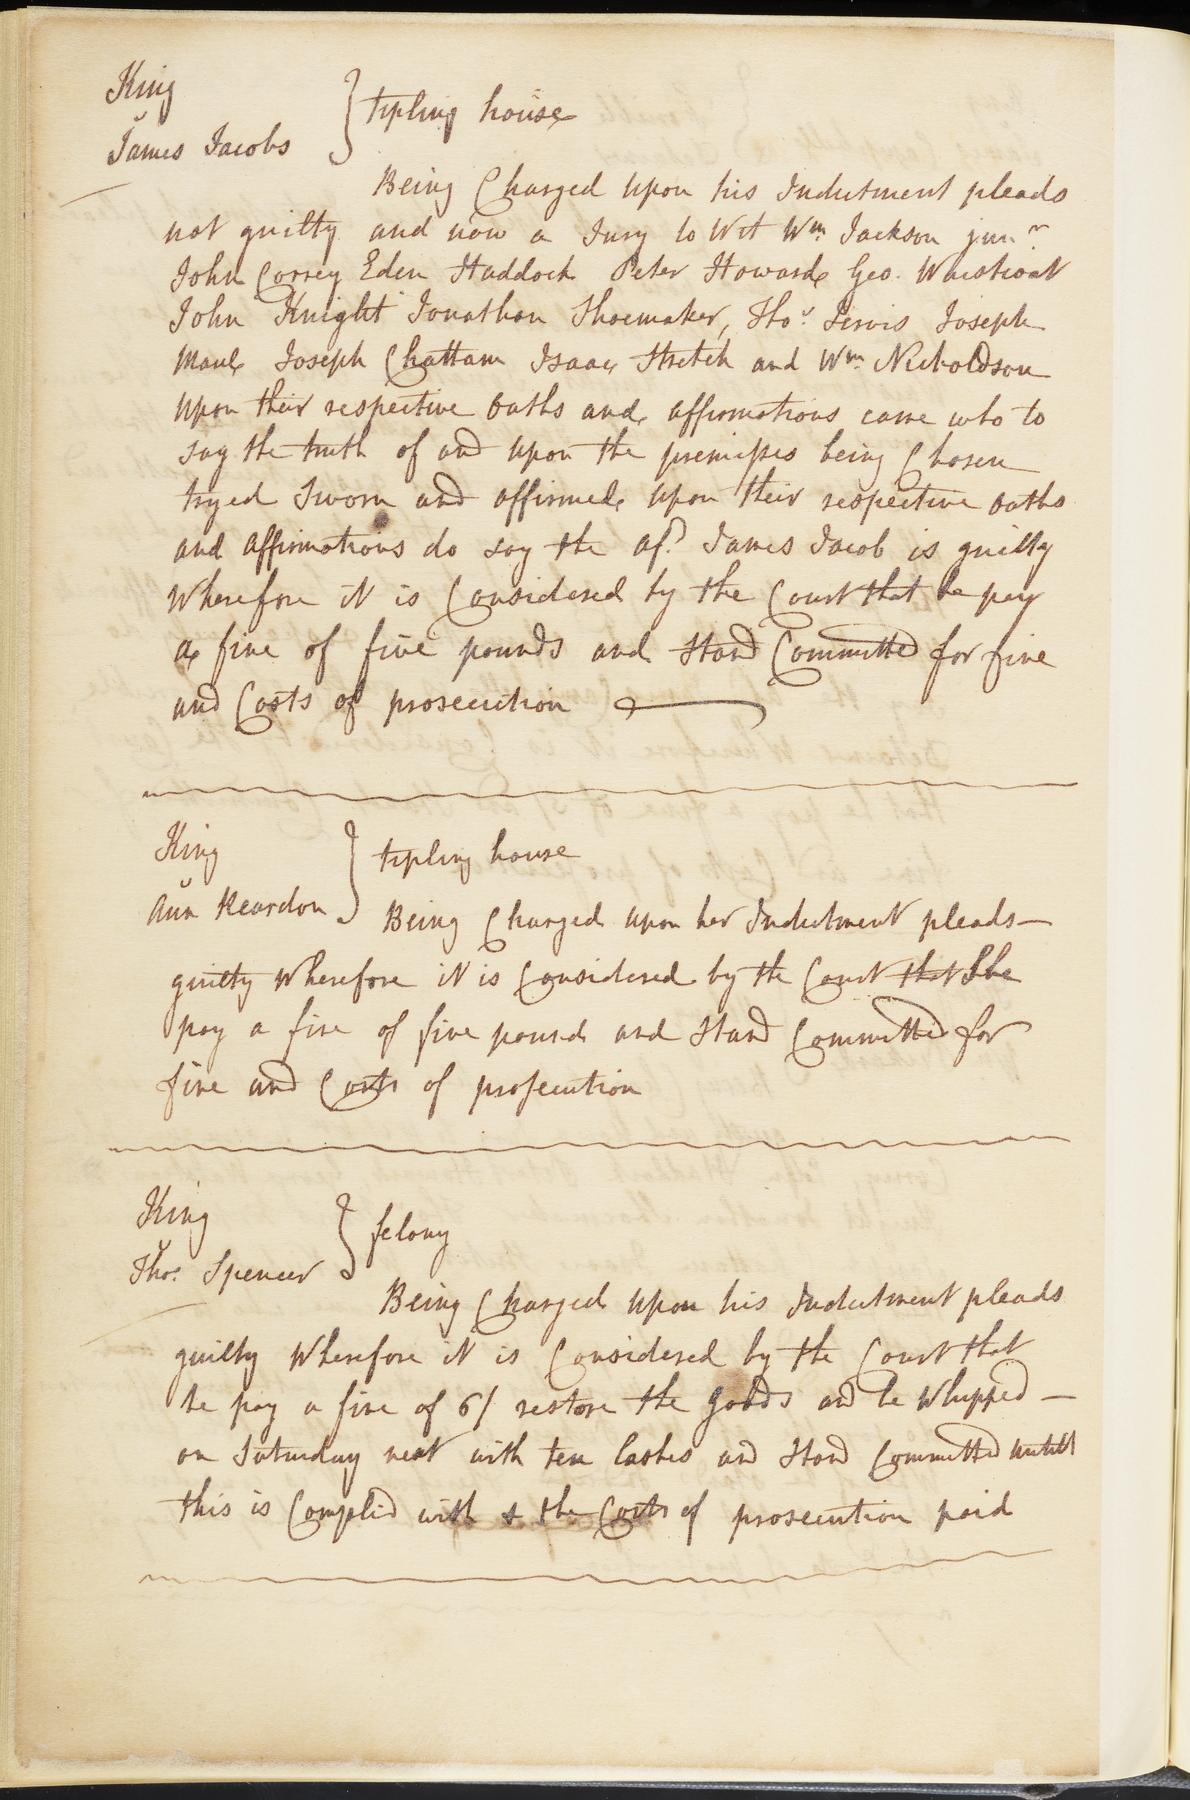 King
v
James Jacobs } tipling house
Being Charged upon his Indictment pleads
not guilty and now a Jury to Wit Wm. Jackson junr.
John Correy Eden Haddock Peter Howard Geo. Waistcoat
John Knight Jonathan Shoemaker, Thos. Jervis Joseph
Maule Joseph Chattam Isaac Stretch and Wm. Nicholdson
upon their respective Oaths and affirmations came who to
say the truth of and upon the premisses being Chosen
tryed Sworn and affirmed upon their respective oaths
and affirmations do say the afd. James Jacob is guilty
Wherefore it is Considered by the Court that he pay
a fine of five pounds and Stand Committed for fine
and Costs of prosecution
King
v
Ann Reardon } tipling house
Being Charged upon her Indictment pleads—
guilty Wherefore it is Considered by the Court that She
pay a fine of five pound and Stand Committed for
fine and Costs of prosecution
King
v
Thos. Spencer } felony
Being Charged upon his Indictment pleads
guilty Wherefore it is Considered by the Court that
he pay a fine of 6/ restore the goods and be Whipped —
on Saturday next with ten lashes and Stand Committed untill
this is Complied with & the Costs of prosecution paid